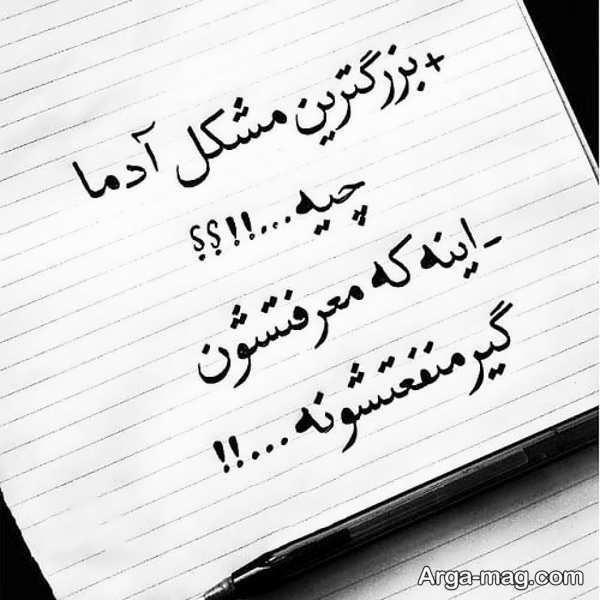 +بزرگترین مشکل آدما
چیه...!!؟؟
_اینه که معرفتشون
گیر منفعتشونه...!!
Arga-mag.com